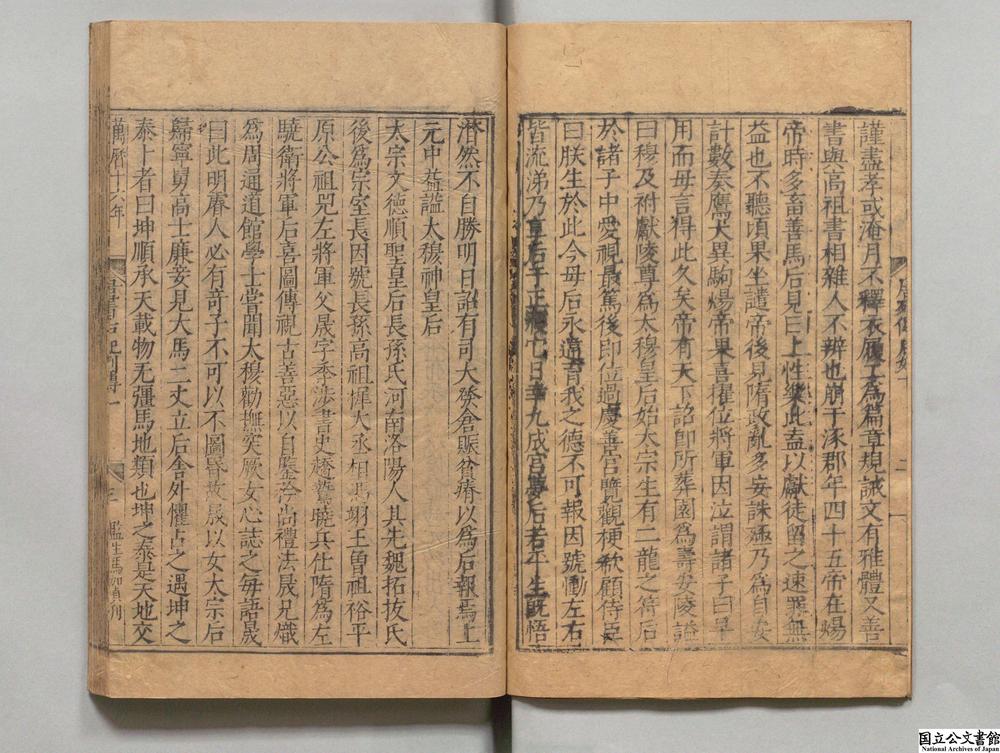 謹盡孝或淹月不釋衣履工為篇章規誡文有雅體又善
書與高祖書相雜人不辨也崩于涿郡年四十五帝在煬
帝時多畜善馬后見曰上性樂此盍以獻徒留之速罪無
益也不聽頃果坐譴帝後見隋政亂多妄誅殛乃為自安
計數奏鷹犬異駒煬帝果喜擢位將軍因泣謂諸子曰早
用而母言得此久矣帝有天下詔即所葬園為壽安陵謚
曰穆及祔獻陵尊為太穆皇后始太宗生有二龍之符后
於諸子中愛視最篤後即位過慶善宮覽觀梗欷顧侍臣
曰朕生於此今母后永違育我之德不可報因號慟左右
皆流涕乃享后于正寢它日幸九成宮夢后若平生既悟
潸然不自勝明日詔有司大發倉賑貧瘠以為后報焉上
元中益謚太穆神皇后
太宗文德順聖皇后長孫氏河南洛陽人其先魏拓拔氏
後為宗室長因號長孫高祖稚大丞相馮翊王曾祖裕平
原公祖兕左將軍父晟字季涉書史趫鷙曉兵仕隋為左
驍衛將軍后喜圖傳視古善惡以自鑒矜尚禮法晟兄熾
為周通道館學士嘗聞太穆勸撫突厥女心誌之每語晟
曰此明睿人必有奇子不可以不圖昬故晟以女太宗后
歸寧舅高士廉妾見大馬二丈立后舍外懼占之遇坤之
泰卜者曰坤順承天載物无彊馬地類也坤之泰是天地交
萬曆十六年
唐書后妃列傳一
三
監生馬加貞刊
国立公文書館
National Archives of Japan